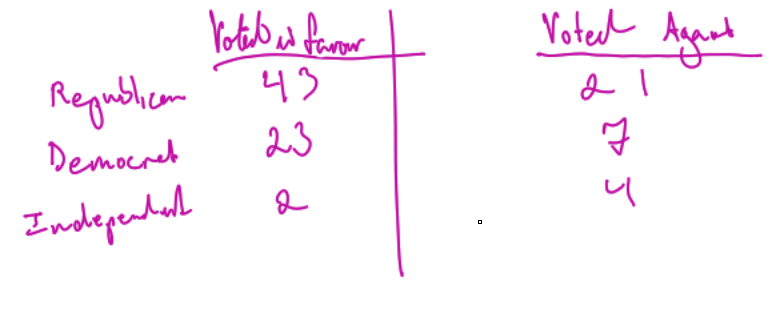 Voted in favour Voted Against
Republican 43 21
Democrat 23 7
Independent 2 4